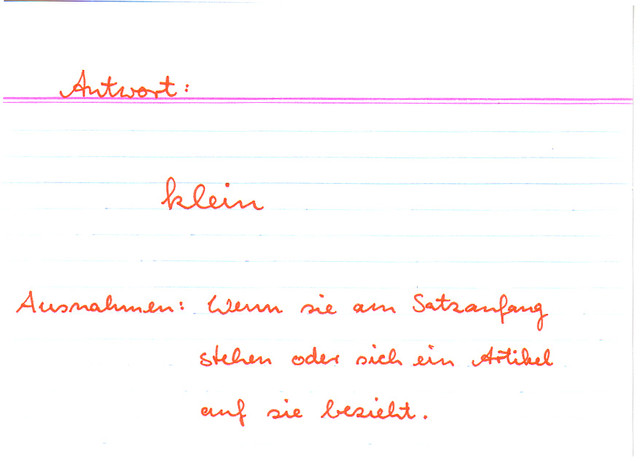 Antwort:
klein
Ausnahmen: Wenn sie am Satzanfang
stehen oder sich ein Artikel
auf sie bezieht.